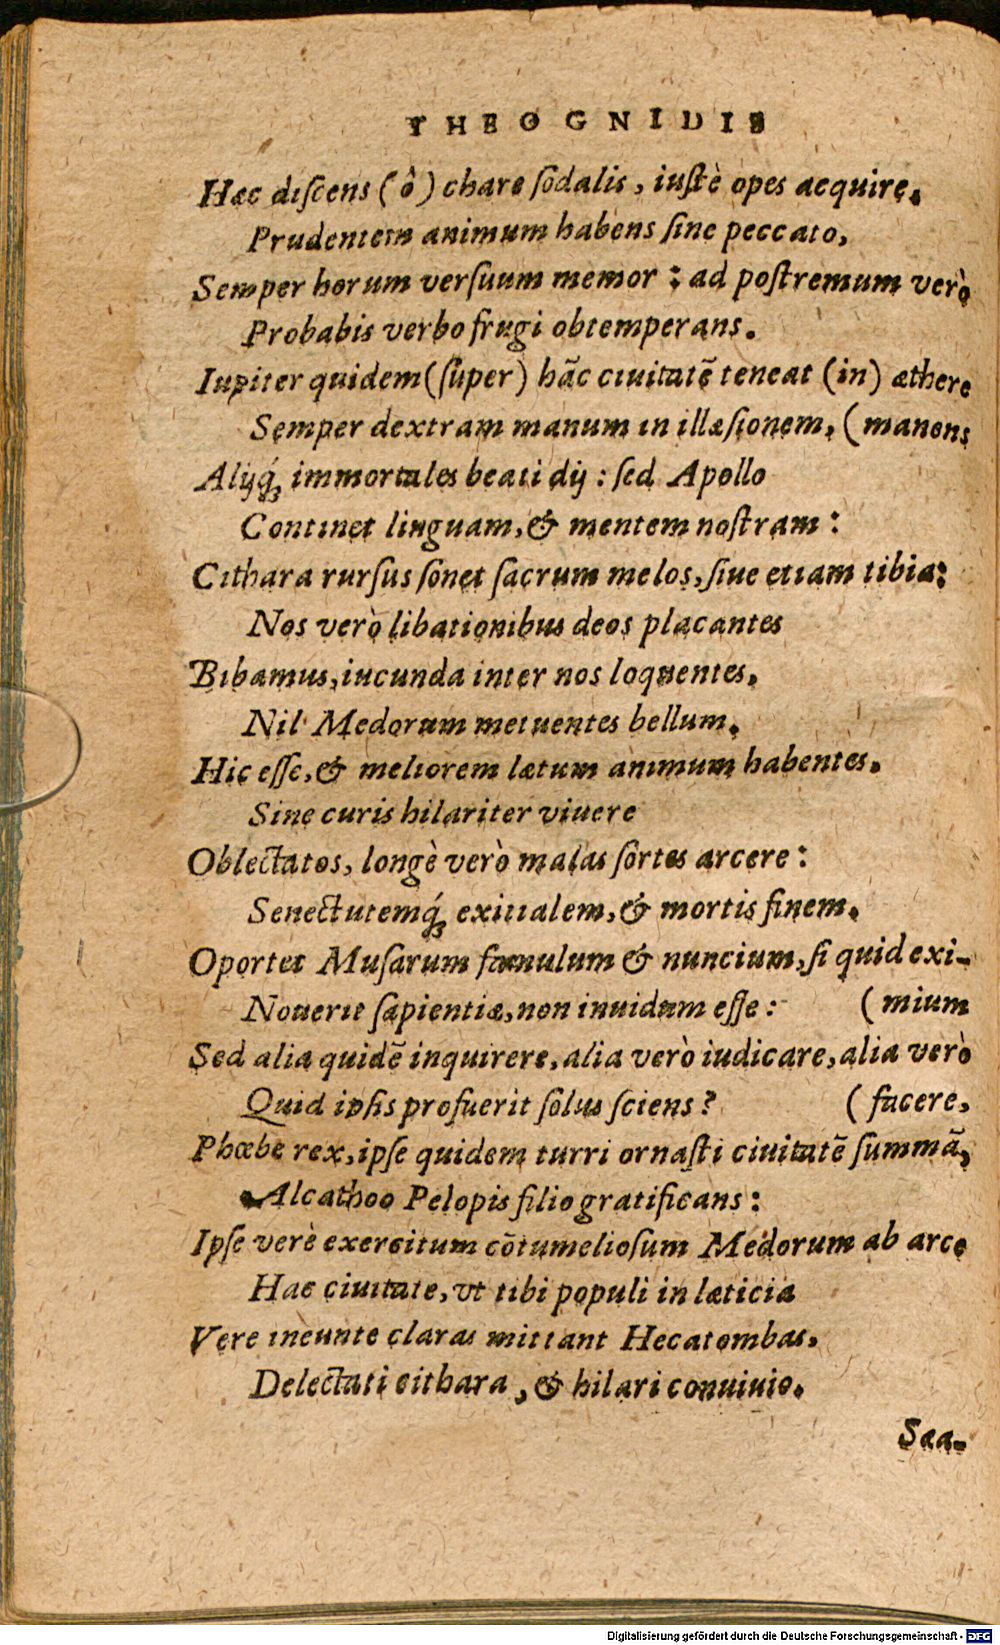 THEOGNIDIS
Hæc diſcens (ô) chare ſodalis, iuſtè opes acquire.
Prudentem animum habens ſine peccato,
Semper horum verſuum memor : ad poſtremum verò
Probabis verbo frugi obtemperans.
Iupiter quidem (ſuper) hãc ciuitatẽ teneat (in) æthere
Semper dextram manum in illæſionem, (manens
Alijq́ꝫ immortales beati dij : ſed Apollo
Continet linguam, & mentem noſtram :
Cithara rurſus ſonet ſacrum melos, ſiue etiam tibia:
Nos verò libationibus deos placantes
Bibamus, iucunda inter nos loquentes.
Nil Medorum metuentes bellum.
Hic eſſe, & meliorem lætum animum habentes.
Sine curis hilariter viuere
Oblectatos, longè verò malas ſortes arcere :
Senectutemq́ꝫ exitialem, & mortis finem.
Oportet Muſarum famulum & nuncium, ſi quid exi-
Nouerit ſapientiæ, non inuidum eſſe : (mium
Sed alia quidẽ inquirere, alia verò iudicare, alia verò
Quid ipſis profuerit ſolus ſciens ? (facere,
Phœbe rex, ipſe quidem turri ornaſti ciuitatẽ ſummã,
Alcathoo Pelopis filio gratificans :
Ipſe verè exercitum cõtumelioſum Medorum ab arce
Hac ciuitate, vt tibi populi in læticia
Vere ineunte claras mittant Hecatombas,
Delectati cithara, & hilari conuiuio.
Saa-
Digitalisierung gefördert durch die Deutsche Forschungsgemeinschaft - DFG